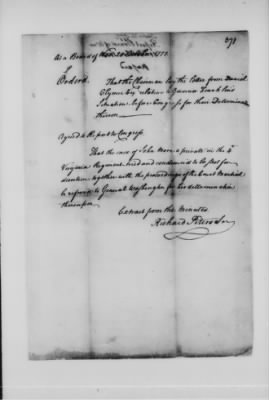 371
At a Board of War 20 October 1777
Ordered.
That the Chairman lay the Letter from Daniel
Clymer Esqr relative to Governor Franklins
Situation before Congress for their Determination
thereon
Agreed to Report to Congress
That the case of John More a private in the 4th
Virginia Regiment tried and condemned to be shot for
desertion together with the proceedings of the Court Martial
be referred to General Washington for his determination
thereupon.
Extract from the Minutes
Richard Peters Secr